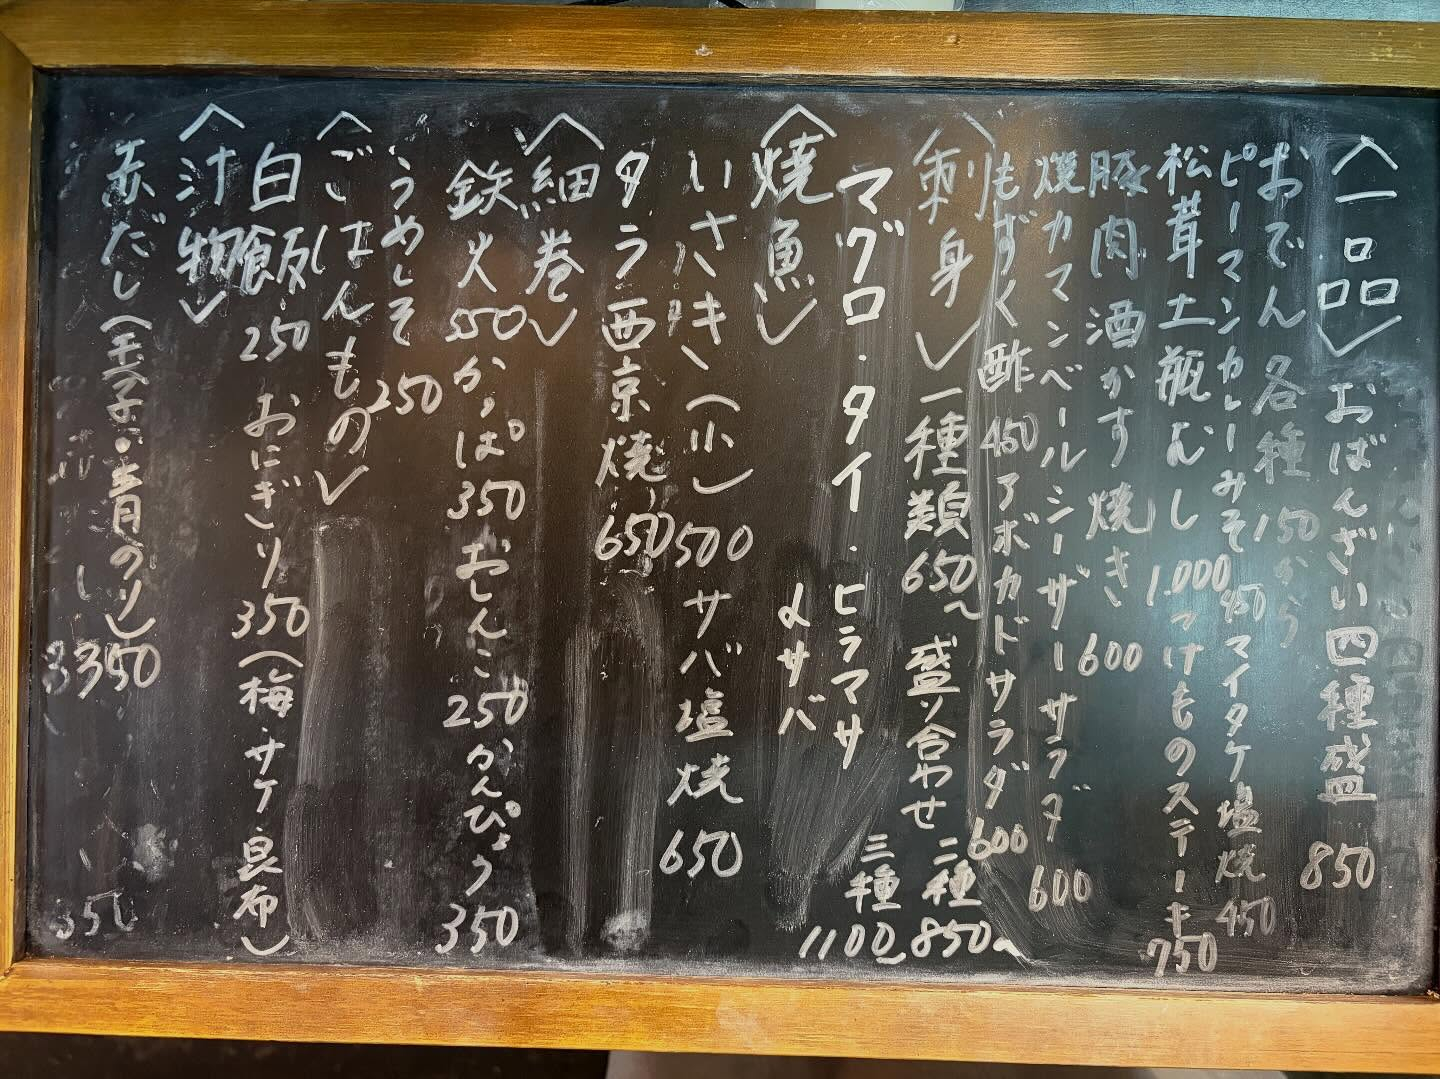 〈一品〉 おばんざい四種盛 850
おでん 各種 150から
ピーマンカレーみそ 450 マイタケ塩焼 450
松茸土瓶むし 1000 つけものステーキ 750
豚肉酒かす焼き 600
焼カマンベールシーザーサラダ 600
もずく酢 450 アボカドサラダ 600
〈刺身〉 一種類 650〜 盛り合わせ 二種 850〜
三種 1100〜
マグロ・タイ・ヒラマサ
〆サバ
〈焼魚〉
いさき(小) 500 サバ塩焼 650
タラ西京焼 650
〈細巻〉
鉄火 550 かっぱ 350 おしんこ 250 かんぴょう 350
うめしそ 250
〈ごはんもの〉
白飯 250 おにぎり 350(梅・サケ・昆布)
〈汁物〉
赤だし(玉子・青のり) 350
350